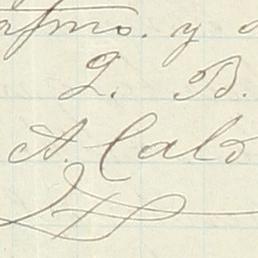 afmo. y
Q. B.
A. Calv